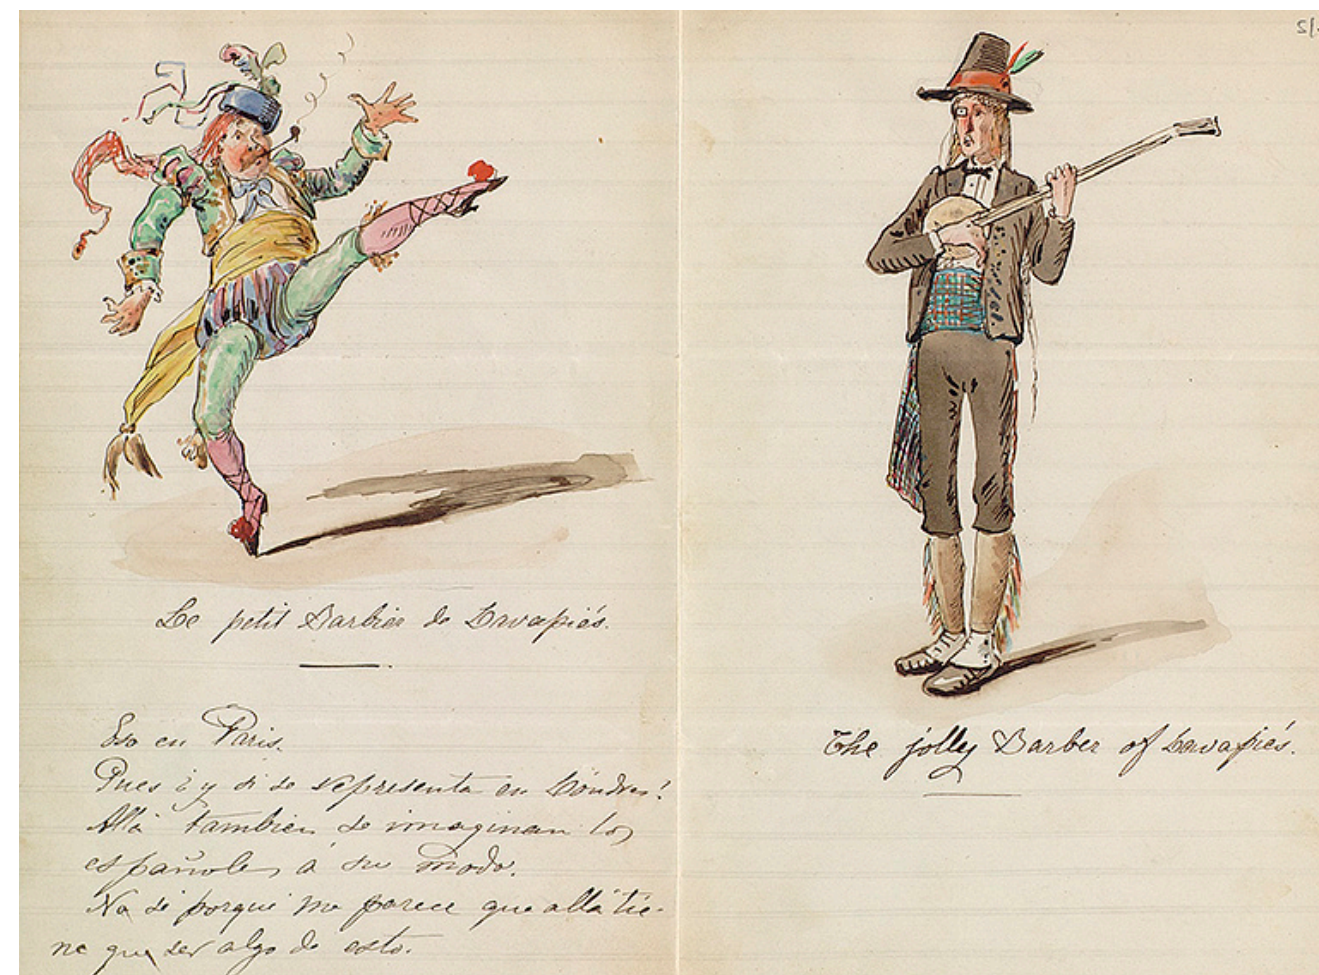 Le petit Barbier de Lavapiés.
Eso en Paris.
Pues ¿y si se representa en Londres?
Allá tambien se imaginan los
españoles á su modo.
No sé porque me parece que allá tie-
ne que ser algo de esto.
The jolly Barber of Lavapiés.